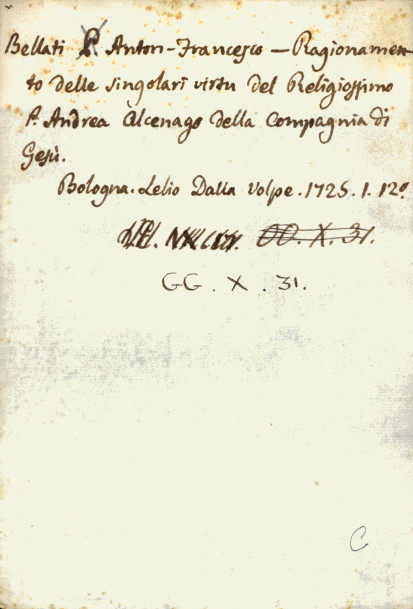 Bellati P. Anton-Francesco — Ragionamen-
to delle singolari virtu del Religiossimo
P. Andrea Alcenago della Compagnia di
Gesù.
Bologna. Lelio Dalla Volpe. 1725. 1. 12º
OO. X. 31.
GG. X. 31.
C